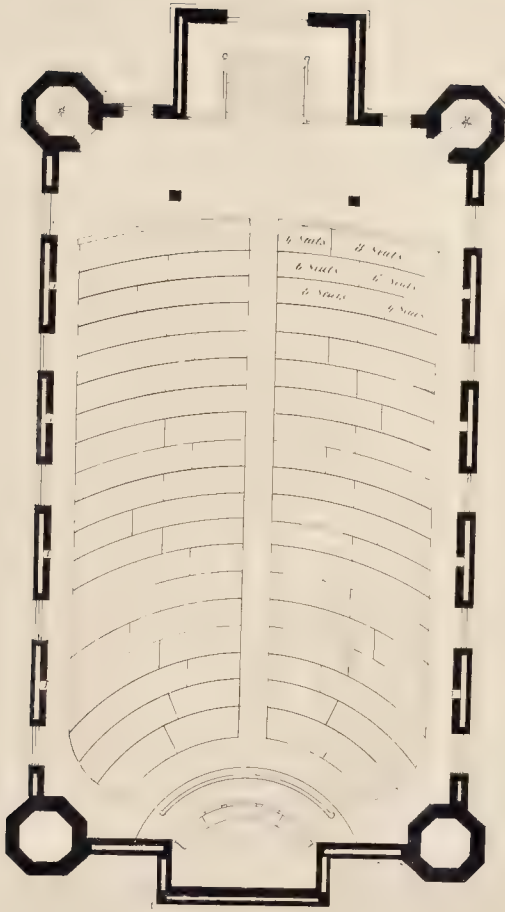 4 Seats Seats
6 Seats 6 Seats
Seats 4 Seats